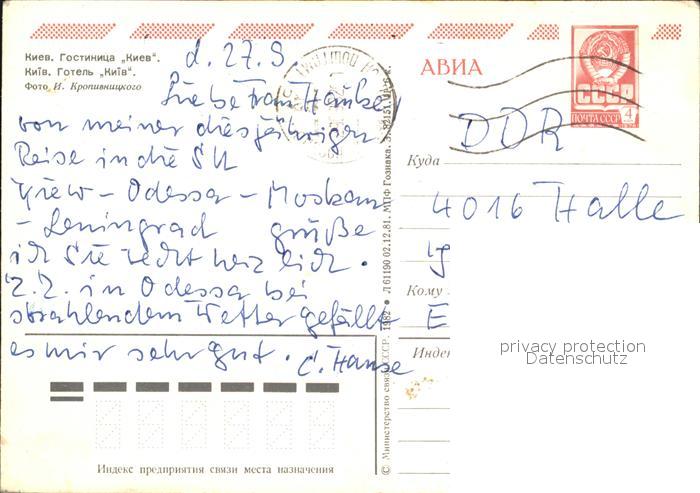 Киев. Гостиница „Киев“.
Київ. Готель „Київ“.
Фото И. Кропивницкого
d. 27.9.
Liebe Frau
von meiner diesjährigen
Reise in die SU
Kiew – Odessa – Moskau
– Leningrad grüße
ich Sie recht herzlich.
Z.Z. in Odessa bei
strahlendem Wetter gefällt
es mir sehr gut.
Индекс предприятия связи места назначения
© Министерство связи СССР. 1982 • Л 61190 02.12.81. МПФ Гознака. З. 82151.
АВИА
СССР
ПОЧТА СССР
4
Куда
DDR
4016 Halle
Кому
E
Индекс
privacy protection
Datenschutz